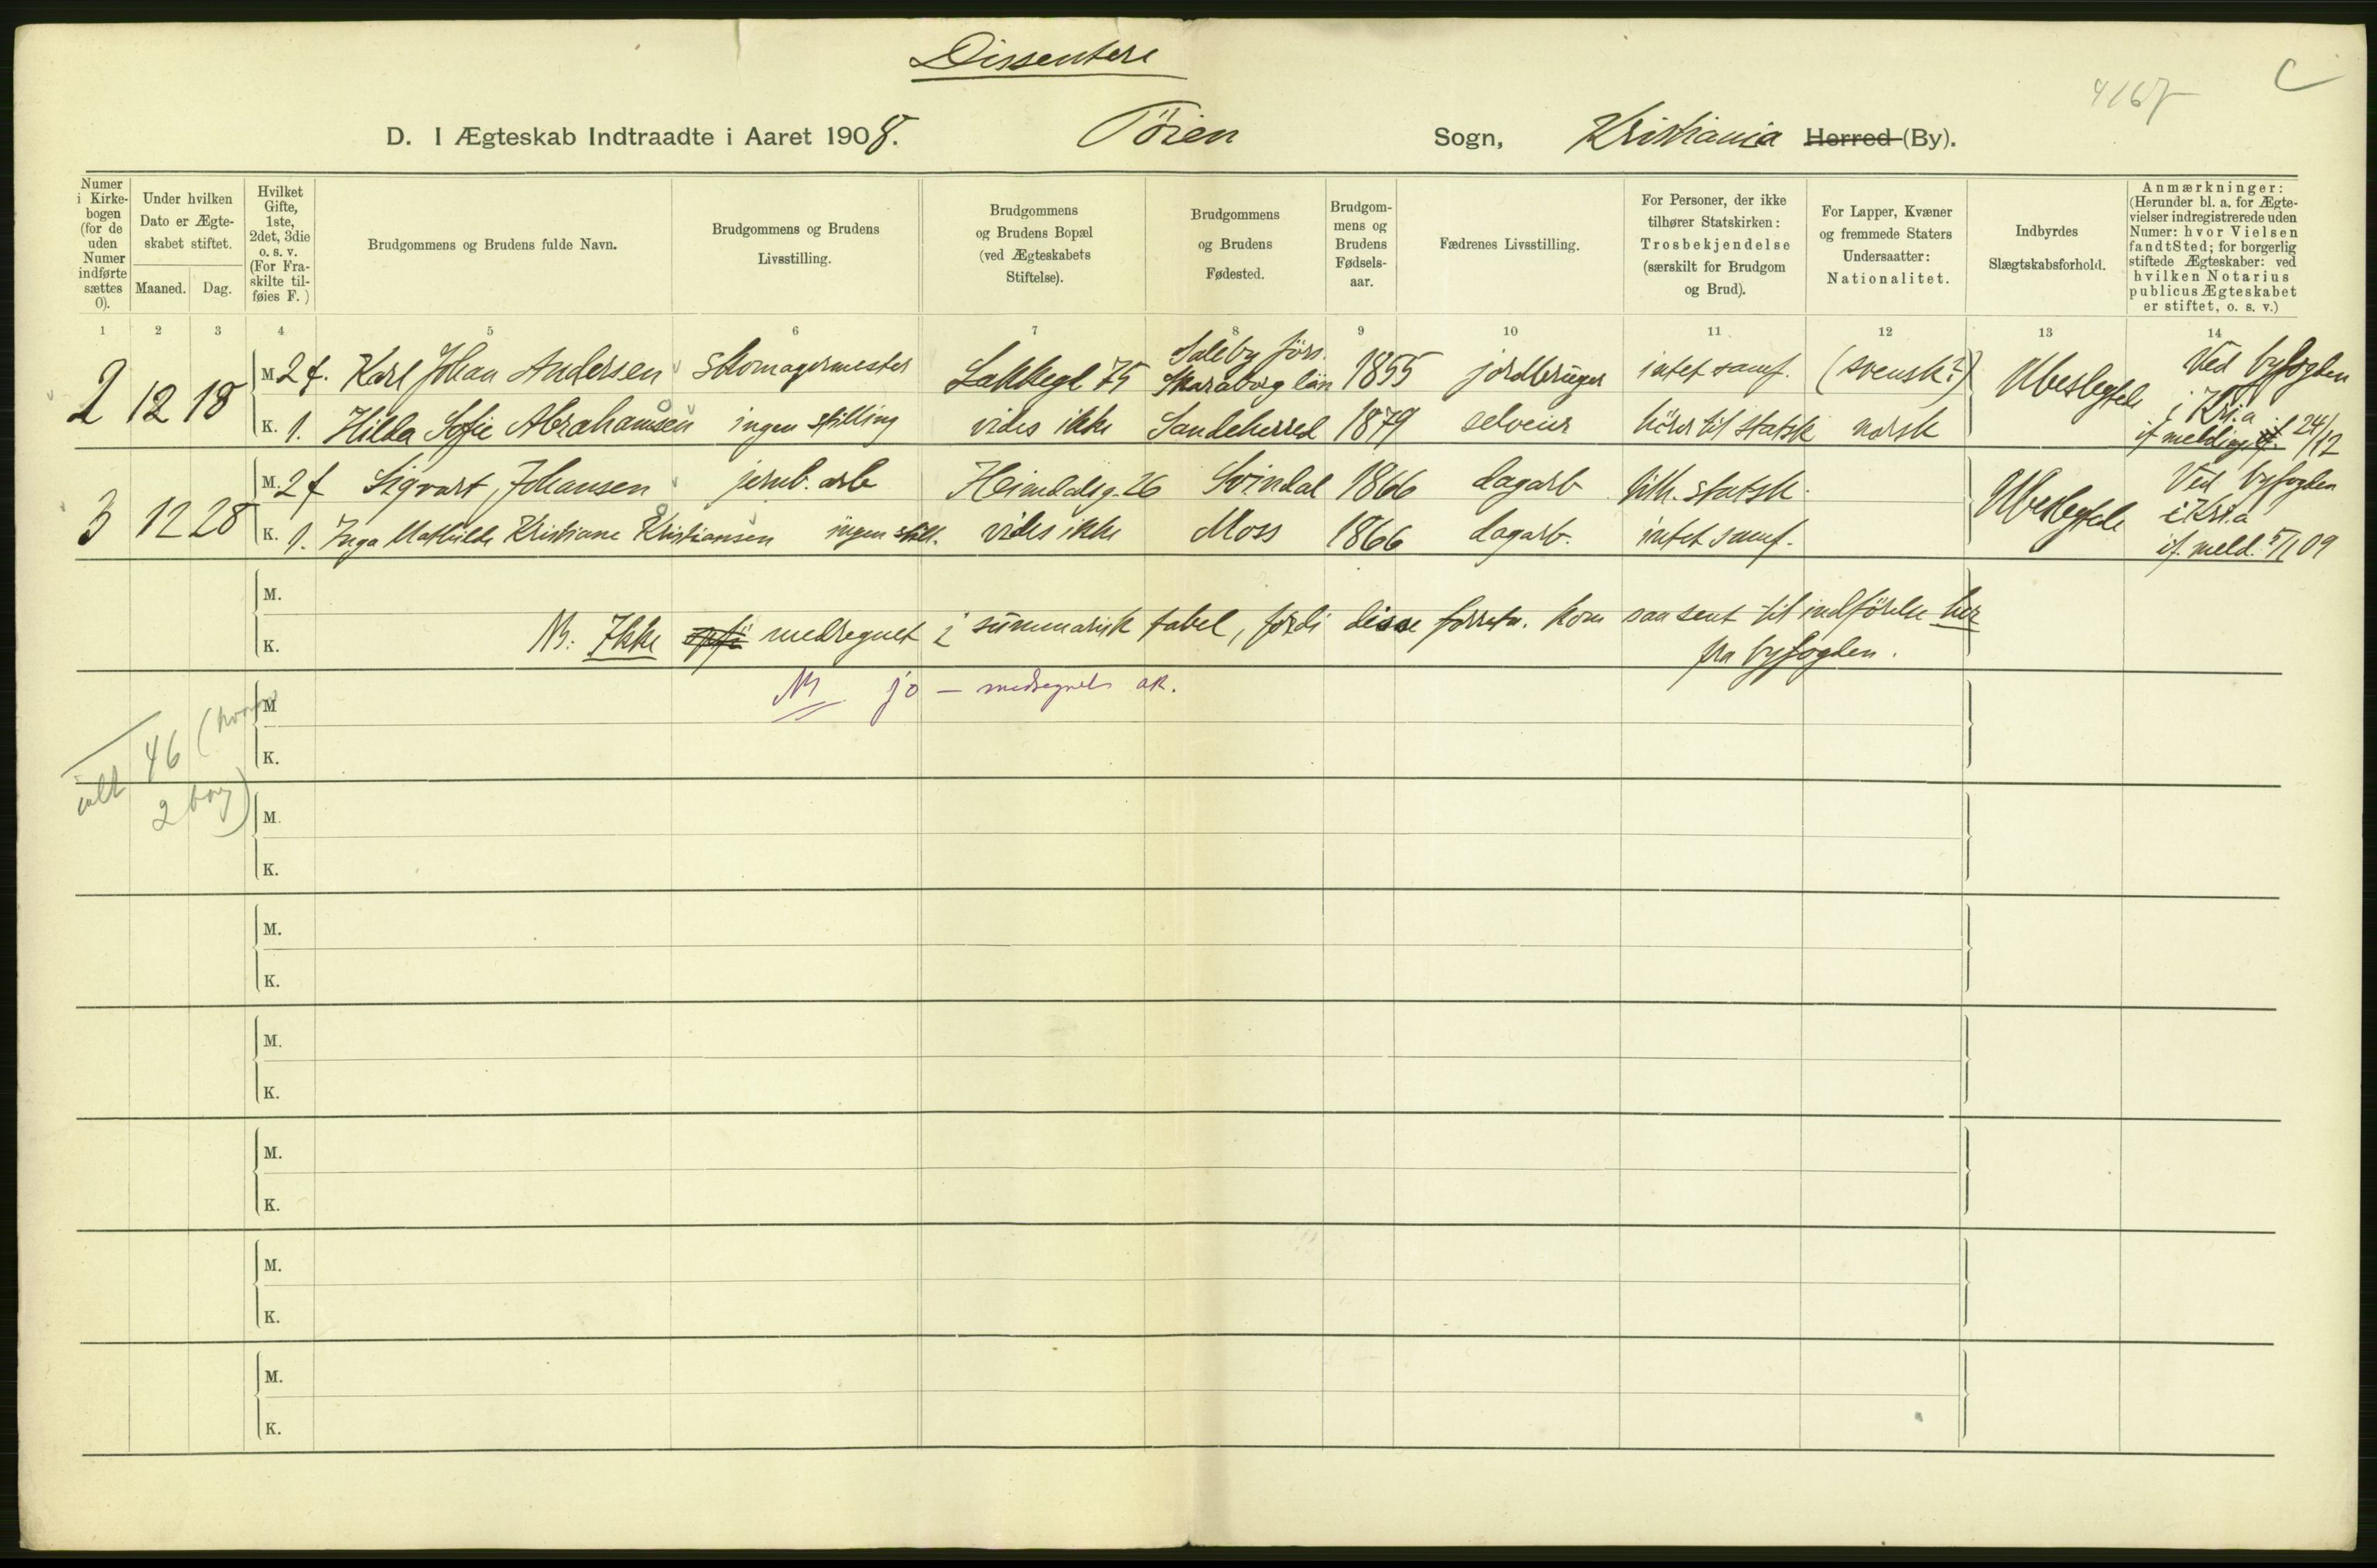 Dissentere
4167
C
D. I Ægteskab Indtraadte i Aaret 1908. Töien Sogn, Kristiania Herred (By).
Numer i Kirkebogen (for de uden Numer indførte sættes 0).
Under hvilken Dato er Ægteskabet stiftet.
Maaned. Dag.
Hvilket Gifte, 1ste, 2det, 3die o. s. v. (For Fraskilte tilføies F.)
Brudgommens og Brudens fulde Navn.
Brudgommens og Brudens Livsstilling.
Brudgommens og Brudens Bopæl (ved Ægteskabets Stiftelse).
Brudgommens og Brudens Fødested.
Brudgommens og Brudens Fødselsaar.
Fædrenes Livsstilling.
For Personer, der ikke tilhører Statskirken: Trosbekjendelse (særskilt for Brudgom og Brud).
For Lapper, Kvæner og fremmede Staters Undersaatter: Nationalitet.
Indbyrdes Slægtskabsforhold.
Anmærkninger: (Herunder bl. a. for Ægtevielser indregistrerede uden Numer: hvor Vielsen fandt Sted; for borgerlig stiftede Ægteskaber: ved hvilken Notarius publicus Ægteskabet er stiftet, o. s. v.)
1 2 3 4 5 6 7 8 9 10 11 12 13 14
2 12 18 M. 2 f. Karl Johan Andersen skomagermester Lakkegt 75 Saleby förs. Skaraborg län 1855 jordbruger intet samf. (svensk?) Ubeslegtede Ved byfogden
i Kr.a
K. 1. Hilda Sofie Abrahamsen ingen stilling vides ikke Sandeherred 1879 selveier hörer til statsk norsk if melding af 24/12
3 12 28 M. 2 f Sigvart Johansen jernb. arb Heimdalsg. 26 Svindal 1866 dagarb tilh. statsk. Ubeslegtede Ved byfogden
i Kr.a
K. 1. Inga Mathilde Kristiane Kristiansen ingen still. vides ikke Moss 1866 dagarb. intet samf. if. meld. 5/1 09
M.
K. NB: Ikke medregnet i summarisk tabel, fordi disse forretn. kom saa sent til indförelse her
fra byfogden.
NB jo — medregnet ak.
M
46
K.
ialt
2 borg)
M.
K.
M.
K.
M.
K.
M.
K.
M.
K.
M.
K.